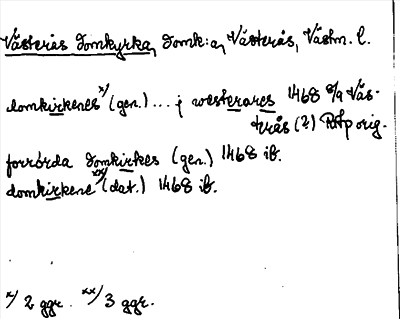 Västerås Domkyrka, Domk:a, Västerås, Västm. l.
domkirkenes x/ (gen.) ... j westerares 1468 8/9 Väs-
terås (?) RAp orig.
forrörda Domkirkes (gen.) 1468 ib.
domkirkene xx/ (dat.) 1468 ib.
x/ 2 ggr. xx/ 3 ggr.